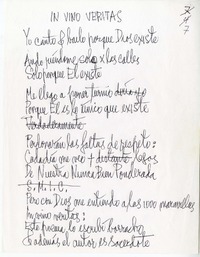 IN VINO VERITAS
Yo canto y bailo porque Dios existe
Ando riéndome solo x las calles
Solo porque El existe
Me llego a poner terno
Porque El es lo único que existe
Verdaderamente
Perdonarán las faltas de respeto:
Cada día me creo + distante
De Nuestra Nunca Bien Ponderada
S.M.I.C.
Pero con Dios me entiendo a las 1000 maravillas
In vino veritas:
Este poema lo escribí borracho
Y además el autor es Sacerdote